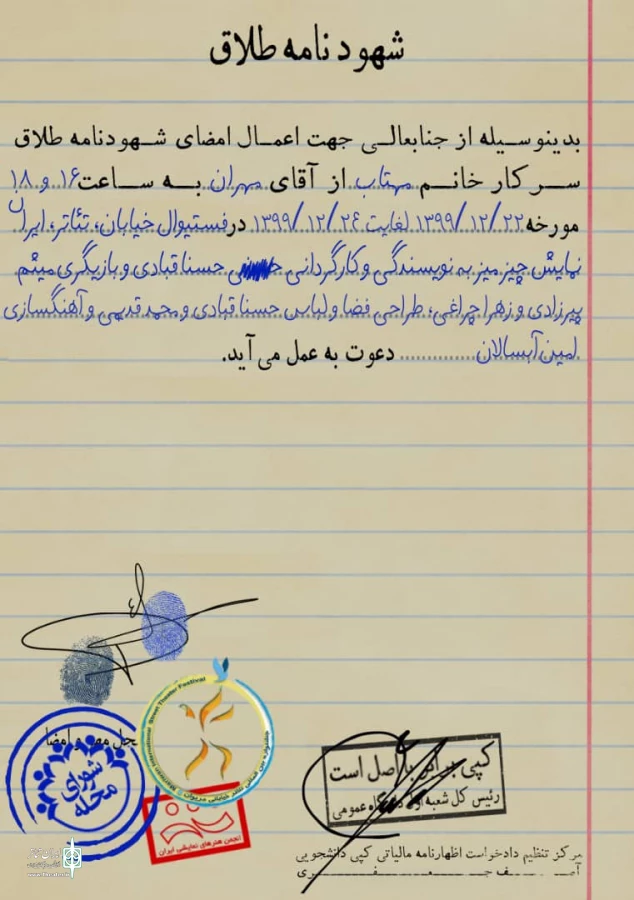 شهودنامه طلاق
بدینوسیله از جنابعالی جهت اعمال امضای شهودنامه طلاق
سرکار خانم مهتاب از آقای مهران به ساعت ۱۶ و ۱۸
مورخه ۱۳۹۹/۱۲/۲۲ لغایت ۱۳۹۹/۱۲/۲۴ در فستیوال خیابان، تئاتر، ایران
نمایش چیز میز به نویسندگی و کارگردانی حسنا قبادی و بازیگری میثم
پیرزادی و زهرا چراغی، طراحی فضا و لباس حسنا قبادی و محمد قدیمی و آهنگسازی
امین آبسالان ............... دعوت به عمل می آید.
محل مهر و امضا
شورای محله
International Street Theater Festival
جشنواره بین المللی تئاتر خیابانی مریوان
انجمن هنرهای نمایشی ایران
کپی برابر با اصل است
رئیس کل شعبه اول دادگاه عمومی
مرکز تنظیم دادخواست اظهارنامه مالیاتی کپی دانشجویی
ایران تئاتر